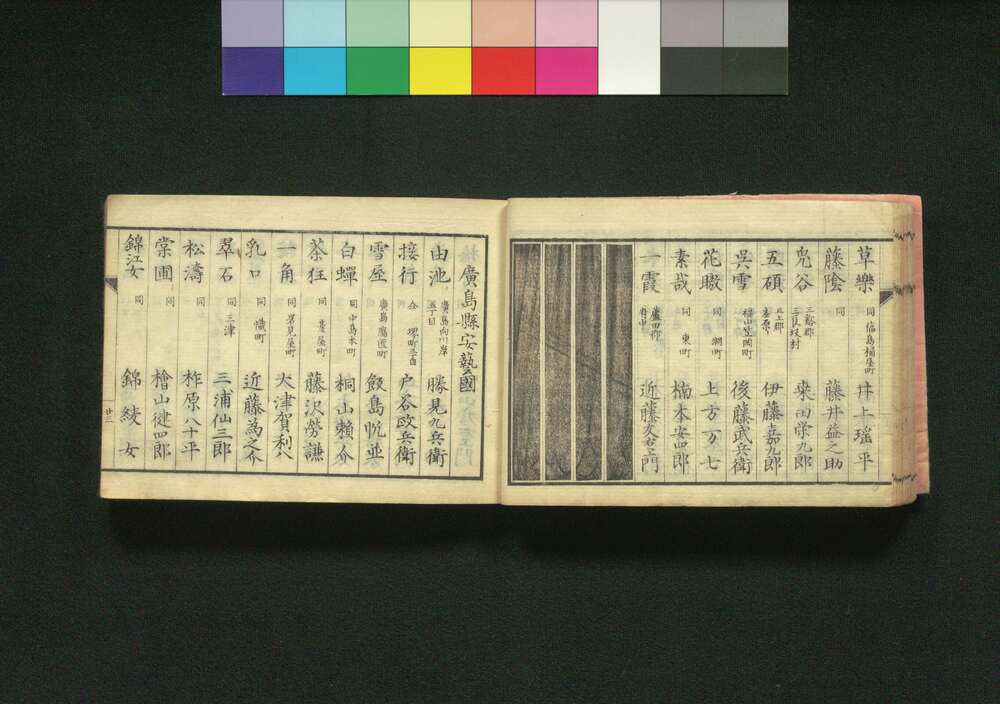 草樂 同 福島桶屋町 井上瑶平
藤陰 同 藤井益之助
鳧谷 三谿郡 三良坂村 桒田常九郎
五碩 井上嘉九郎
呉雪 後藤武兵衛
花暾 同 網町 上方万七
素哉 同 東町 楠木安四郎
一霞 蘆田郡 府中 近藤友右衛門
廣島縣安藝國
由池 廣島向川岸 五丁目 勝見九兵衛
接行 仝 堺町三丁目 户谷政兵衛
雪屋 廣島鷹匠町 飯島忱亟
白蟬 同 中島本町 桐山賴介
茶狂 同 藤沢勞謙
一角 同 碧見屋町 大津賀利八
乳口 同 幟町 近藤為之介
翠石 同 三津 三浦仙三郎
松濤 同 柞原八十平
棠圃 同 檜山健四郎
錦江女 同 錦綾女
廿三